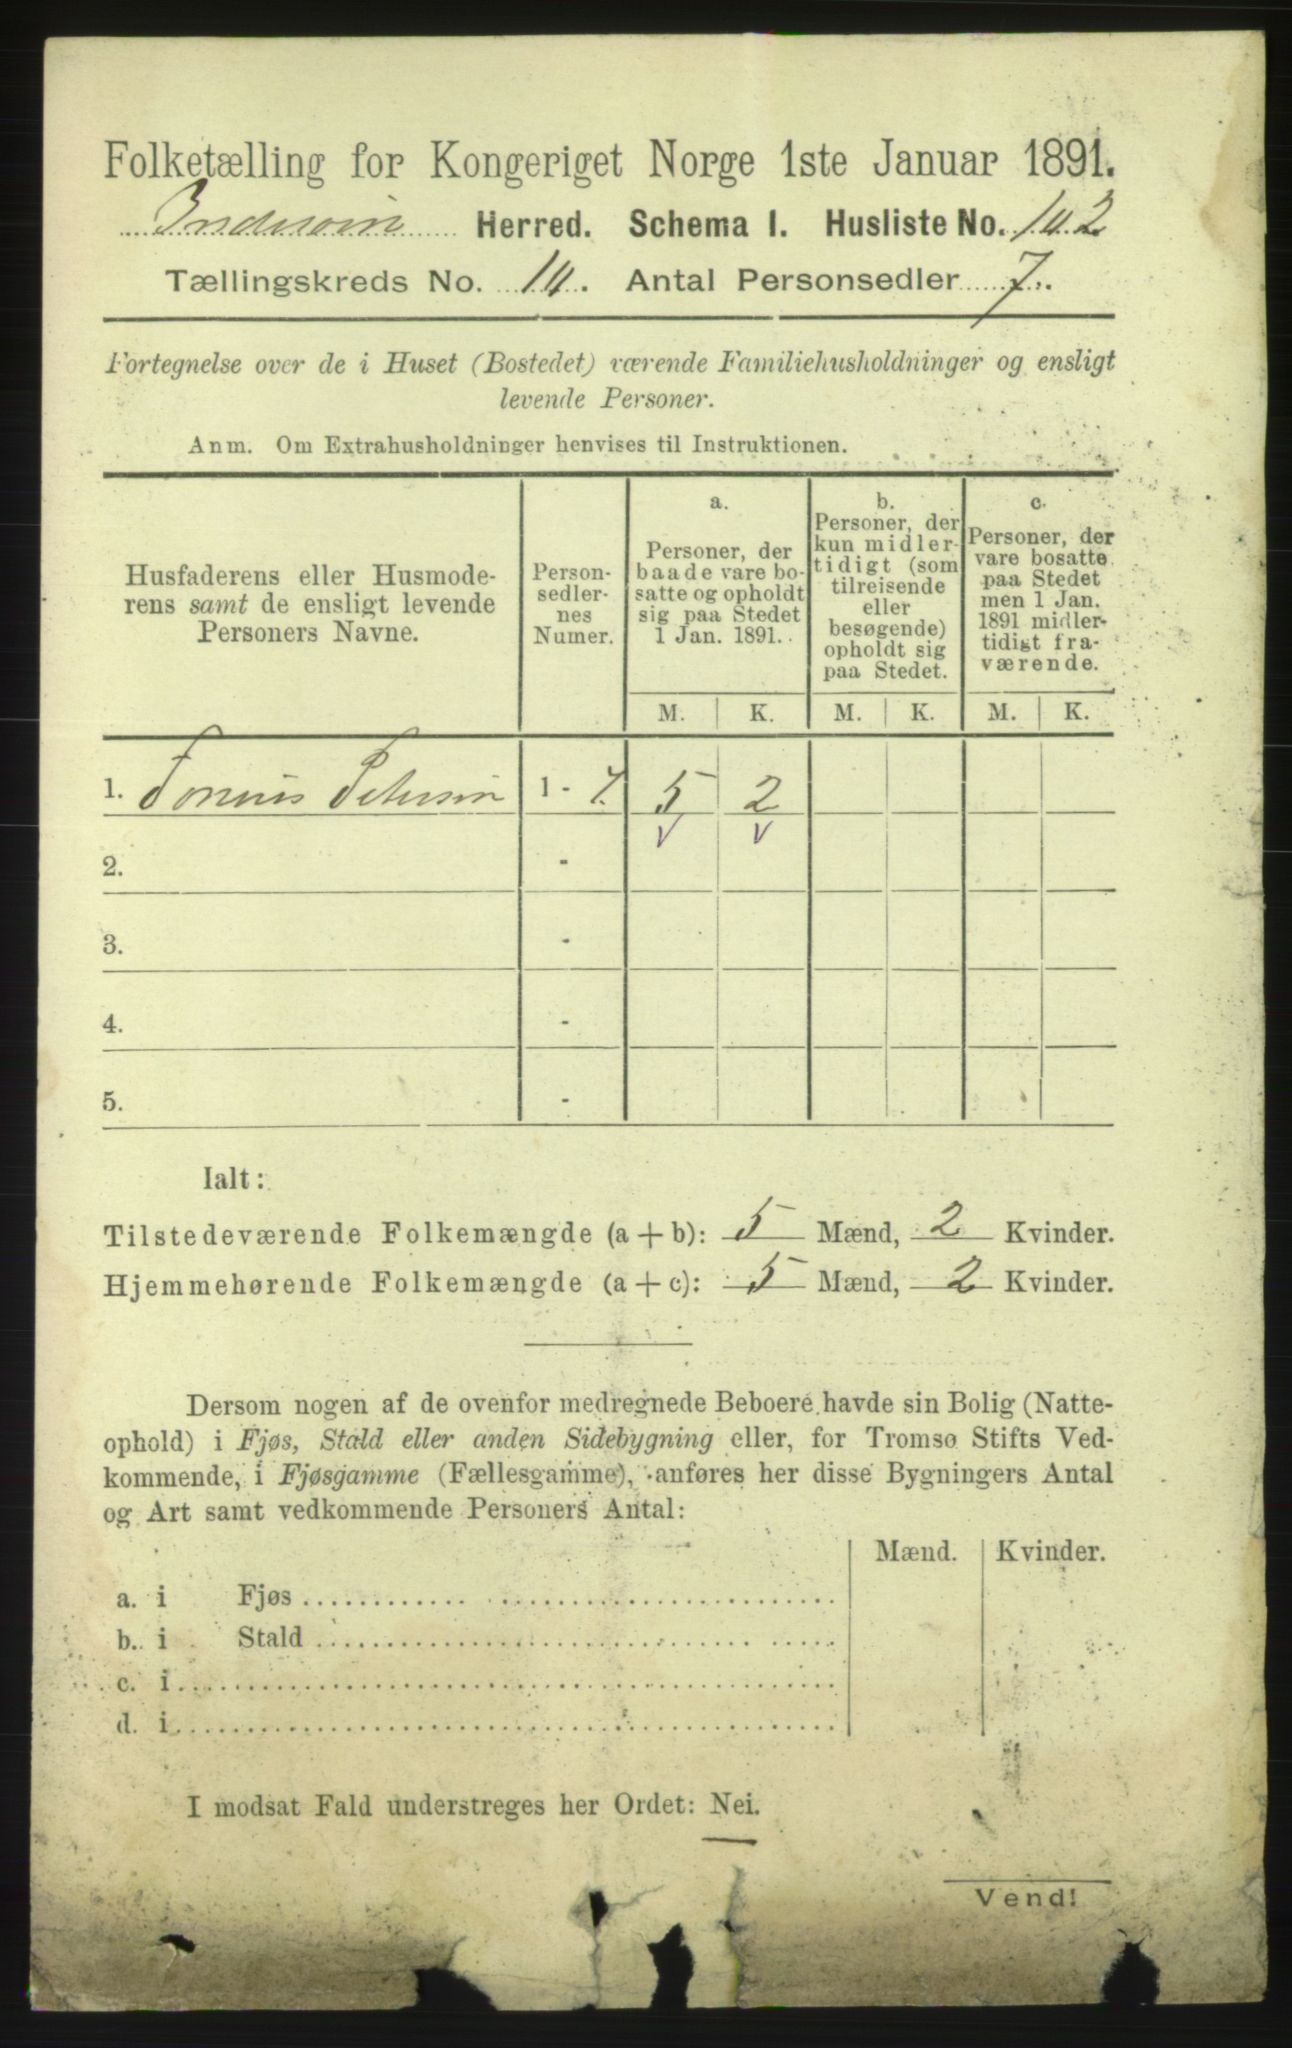 Folketælling for Kongeriget Norge 1ste Januar 1891.
Inderøen Herred. Schema I. Husliste No. 102
Tællingskreds No. 10. Antal Personsedler 7.
Fortegnelse over de i Huset (Bostedet) værende Familiehusholdninger og ensligt
levende Personer.
Anm. Om Extrahusholdninger henvises til Instruktionen.
Husfaderens eller Husmode-
rens samt de ensligt levende
Personers Navne.
Person-
sedler-
nes
Numer.
a.
Personer, der
baade vare bo-
satte og opholdt
sig paa Stedet
1 Jan. 1891.
b.
Personer, der
kun midler-
tidigt (som
tilreisende
eller
besøgende)
opholdt sig
paa Stedet.
c.
Personer, der
vare bosatte
paa Stedet
men 1 Jan.
1891 midler-
tidigt fra-
værende.
M. K. M. K. M. K.
1. Petersen 1 - 7. 5 2
2. -
3. -
4. -
5. -
Ialt:
Tilstedeværende Folkemængde (a + b): 5 Mænd, 2 Kvinder.
Hjemmehørende Folkemængde (a + c): 5 Mænd, 2 Kvinder.
Dersom nogen af de ovenfor medregnede Beboere havde sin Bolig (Natte-
ophold) i Fjøs, Stald eller anden Sidebygning eller, for Tromsø Stifts Ved-
kommende, i Fjøsgamme (Fællesgamme), anføres her disse Bygningers Antal
og Art samt vedkommende Personers Antal:
Mænd. Kvinder.
a. i Fjøs
b. i Stald
c. i
d. i
I modsat Fald understreges her Ordet: Nei.
Vend!